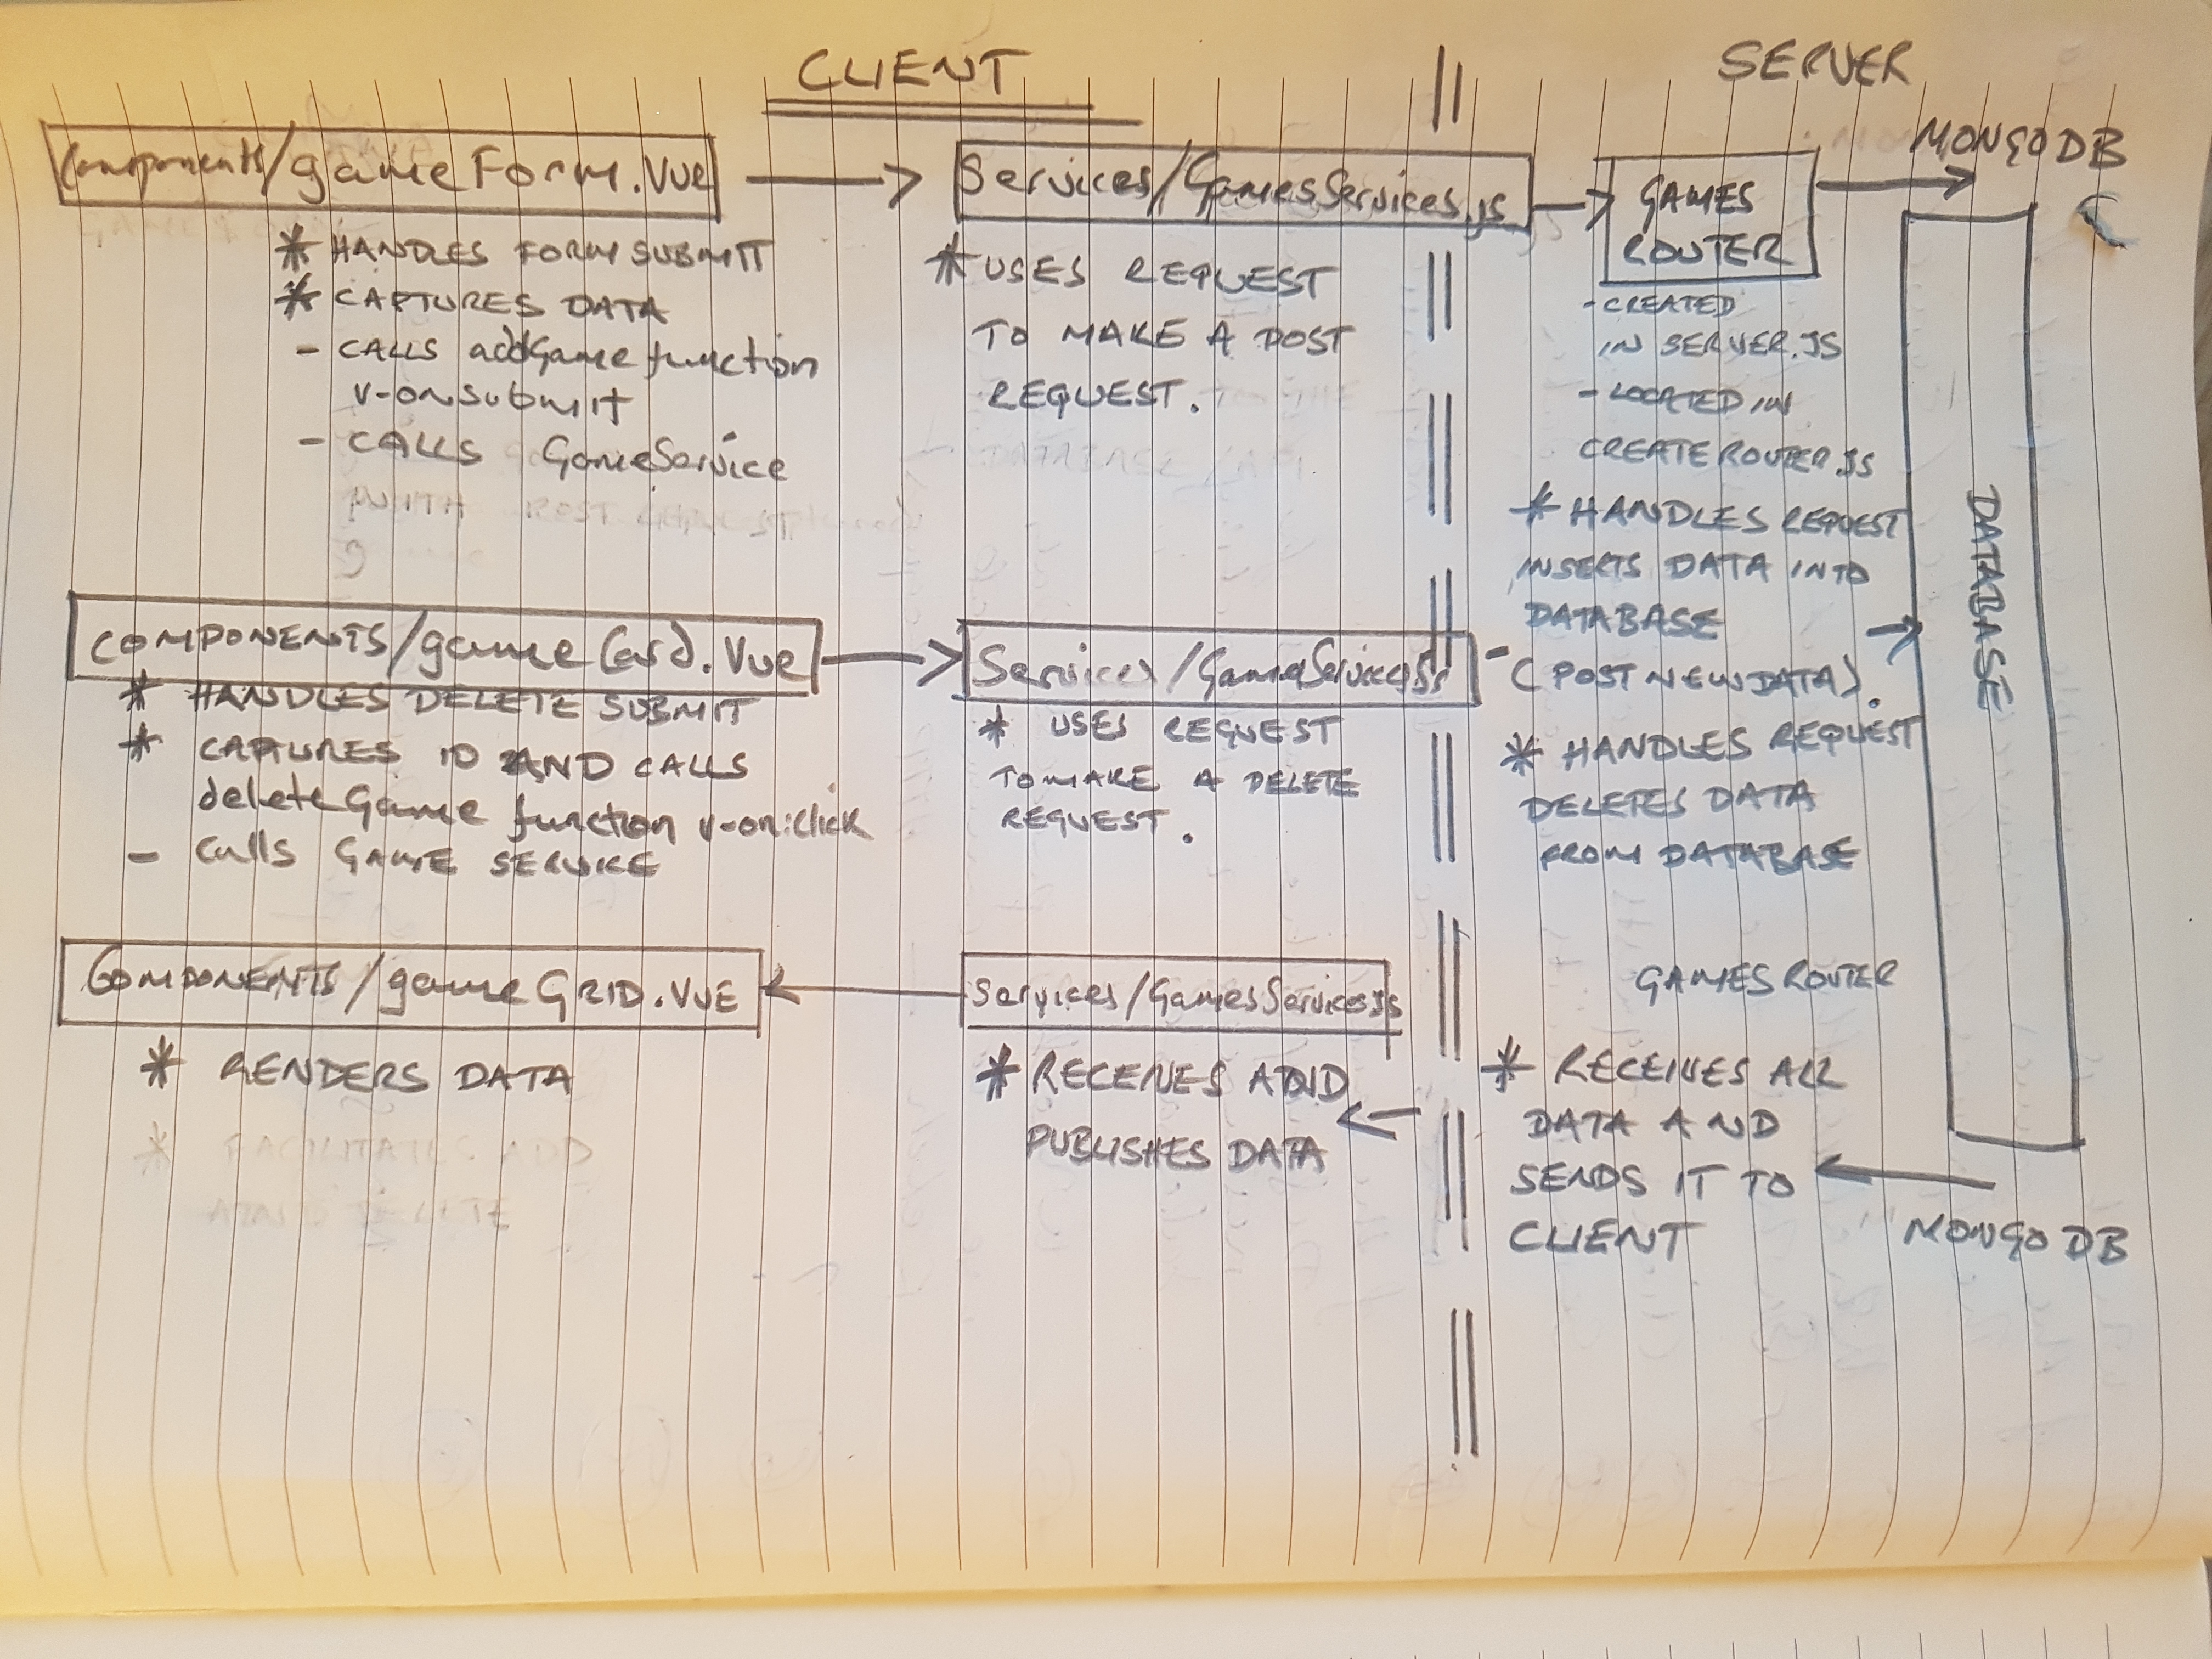 CLIENT
SERVER
Components/gameForm.Vue
Services/GamesServices.js
GAMES
ROUTER
MONGODB
* HANDLES FORM SUBMIT
* CAPTURES DATA
- CALLS addGame function
v-onsubmit
- CALLS GameService
* USES REQUEST
TO MAKE A POST
REQUEST.
- CREATED
IN SERVER.JS
- LOCATED IN
CREATEROUTER.JS
* HANDLES REQUEST
INSERTS DATA INTO
DATABASE
(POST NEW DATA).
DATABASE
COMPONENTS/gameCard.Vue
* HANDLES DELETE SUBMIT
* CAPTURES ID AND CALLS
deleteGame function v-on:click
- Calls GAME SERVICE
Services/GameServices.js
* USES REQUEST
TO MAKE A DELETE
REQUEST.
* HANDLES REQUEST
DELETES DATA
FROM DATABASE
COMPONENTS/gameGRID.VUE
* RENDERS DATA
* FACILITATES ADD
AND DELETE
Services/GamesServices.Js
* RECEIVES AND
PUBLISHES DATA
GAMES ROUTER
* RECEIVES ALL
DATA AND
SENDS IT TO
CLIENT
MONGO DB